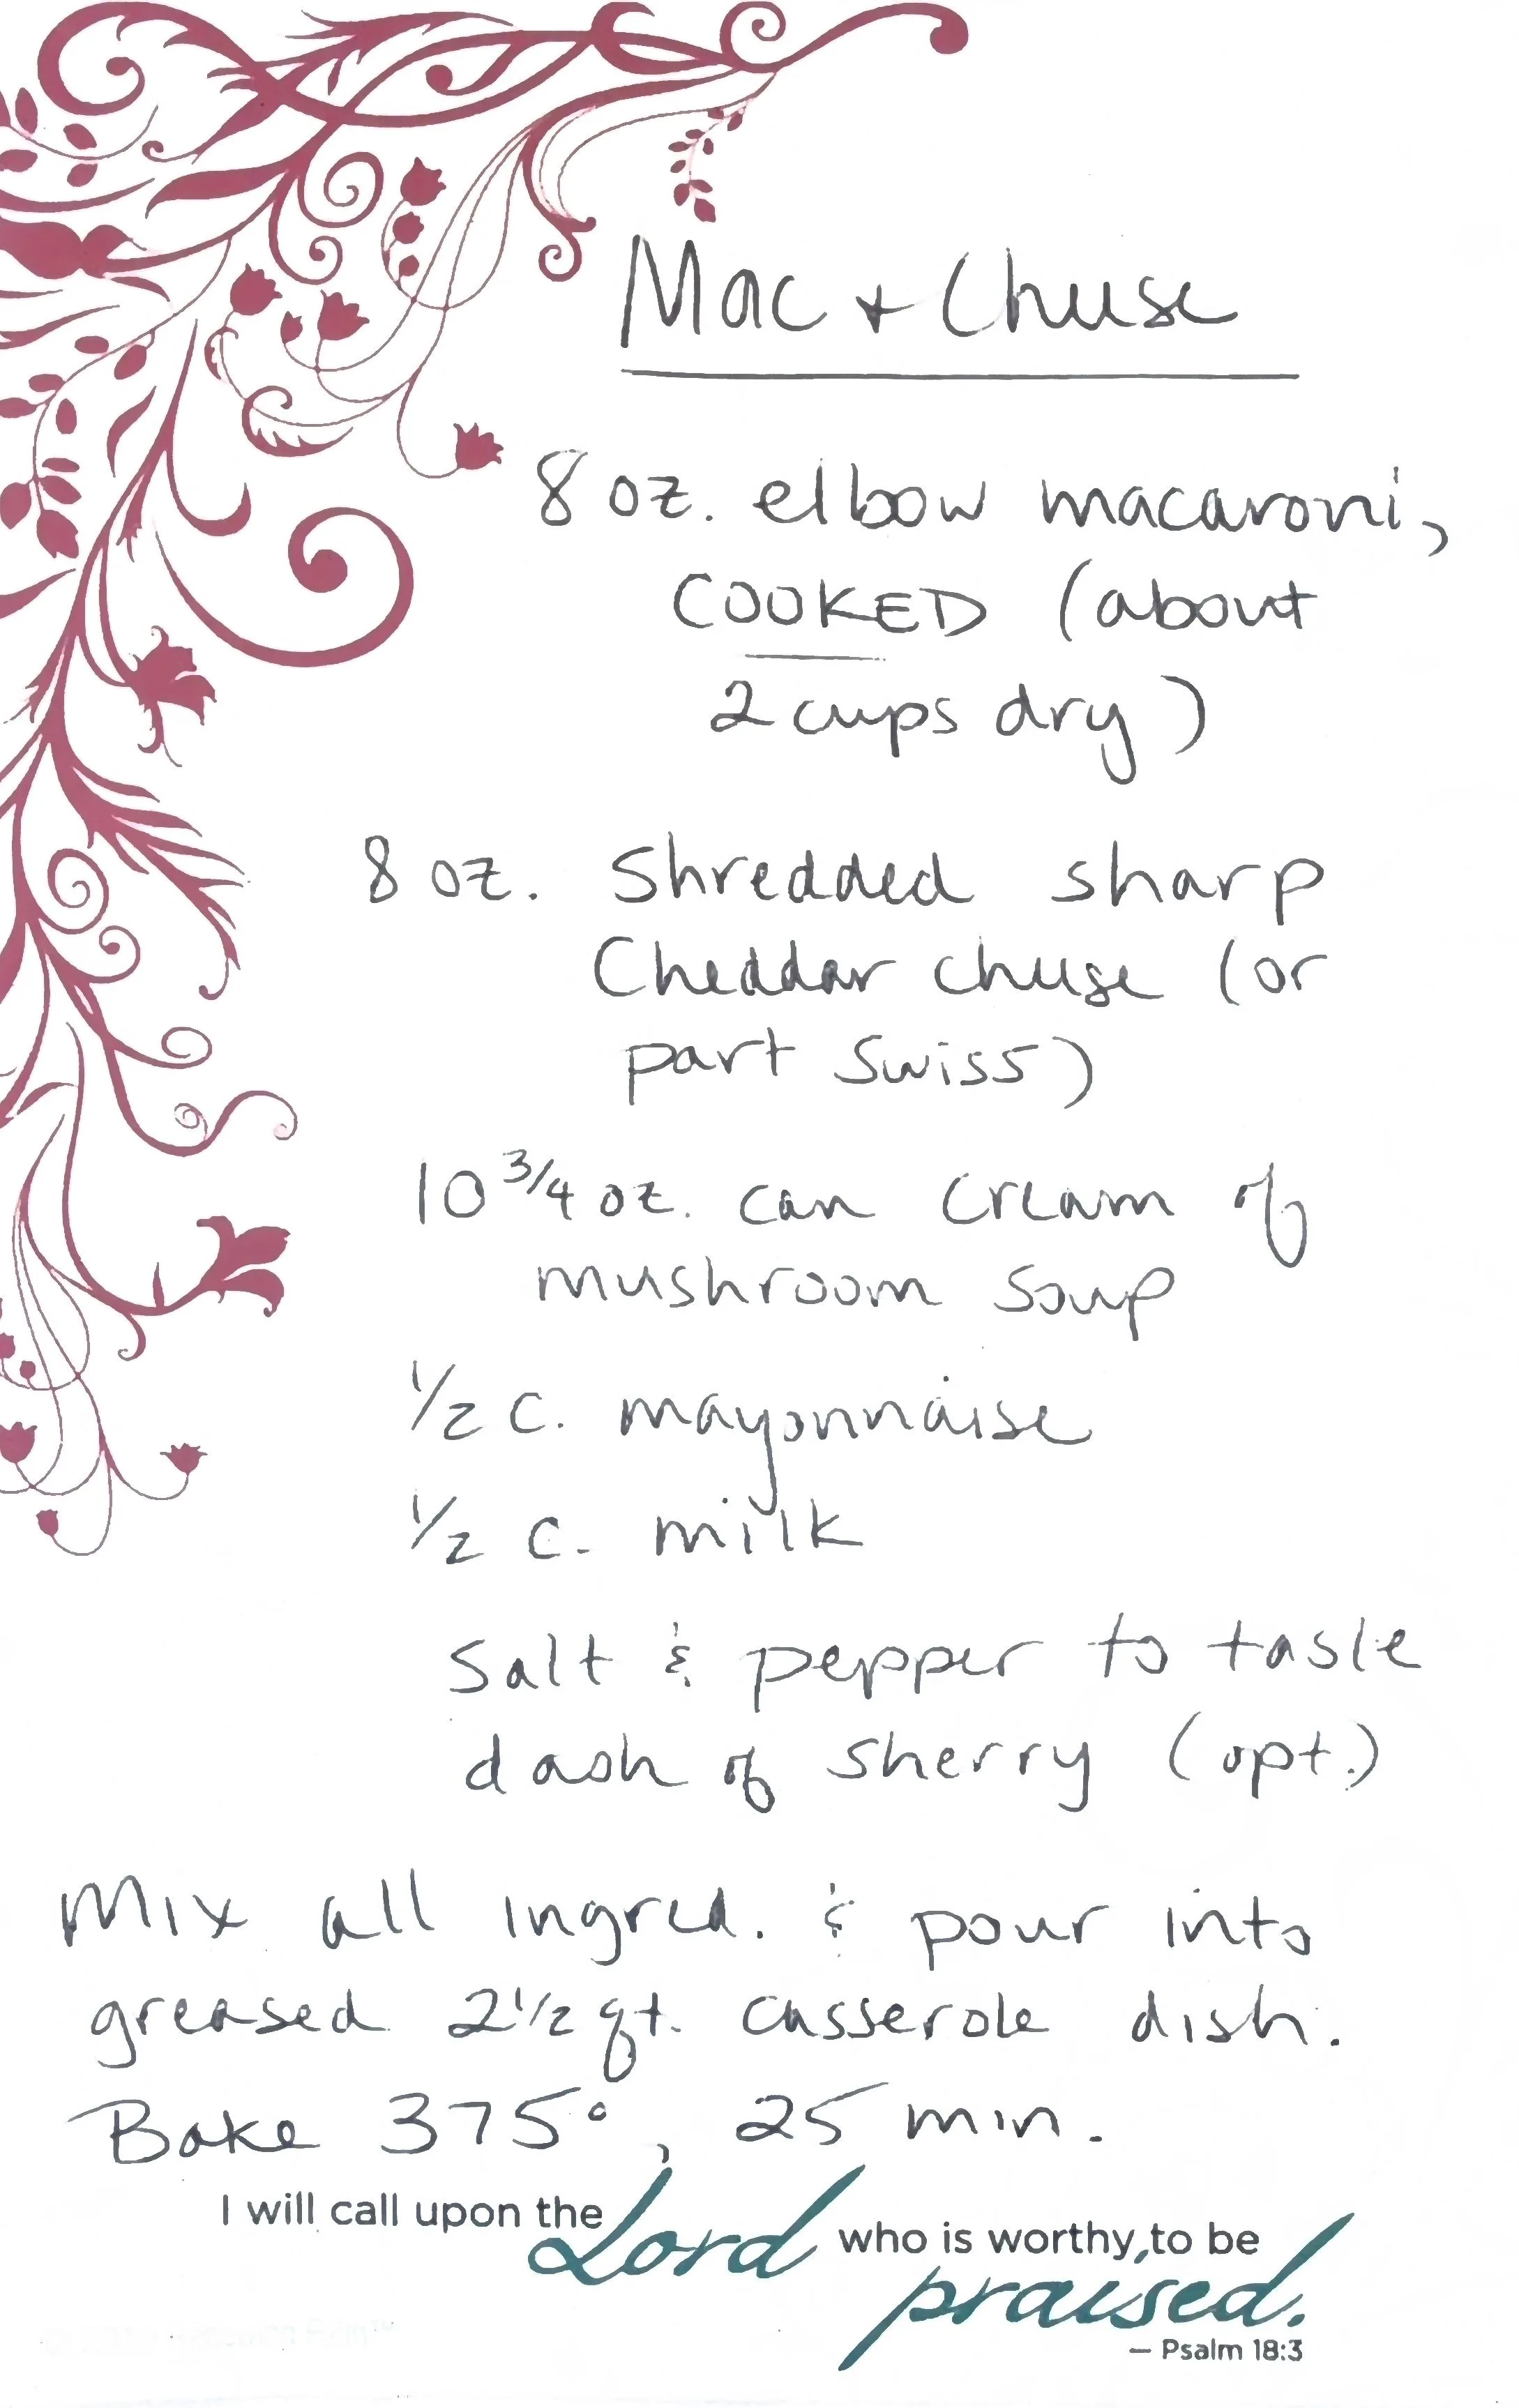 Mac + Cheese
8 oz. elbow macaroni,
COOKED (about
2 cups dry)
8 oz. shredded sharp
Cheddar cheese (or
part Swiss)
10 3/4 oz. can cream of
mushroom soup
1/2 c. mayonnaise
1/2 c. milk
Salt & pepper to taste
dash of sherry (opt.)
Mix all ingred. & pour into
greased 2 1/2 qt. casserole dish.
Bake 375°, 25 min.
I will call upon the Lord who is worthy to be
praised.
– Psalm 18:3